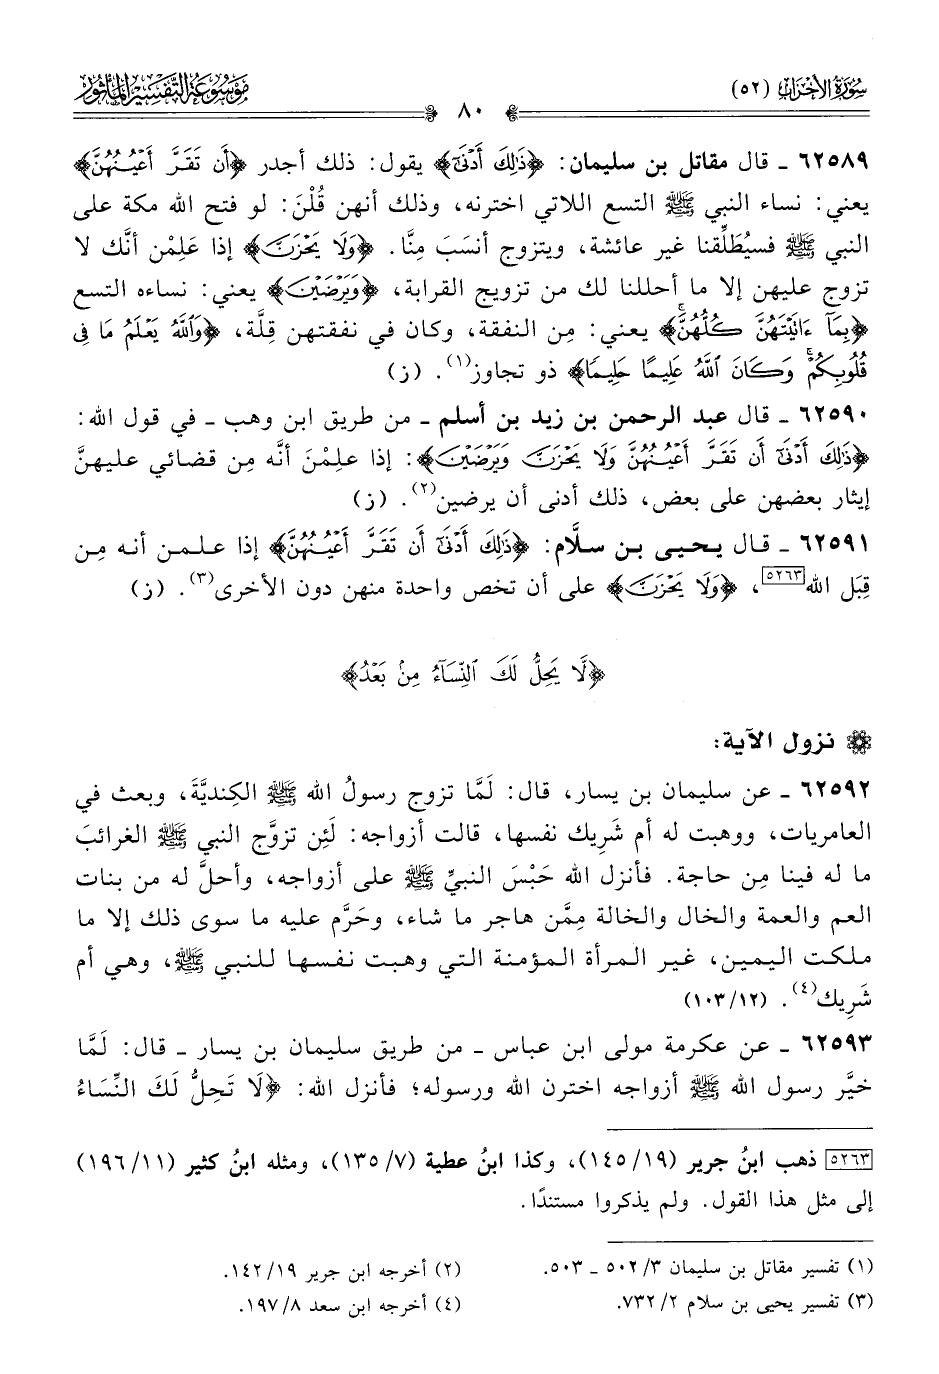 سُورَةُ الأَحْزَابِ (٥٢)
٨٠
مَوْسُوعَةُ التَّفْسِيرِ المَأْثُورِ
٦٢٥٨٩ ـ قال مقاتل بن سليمان: ﴿ذَٰلِكَ أَدْنَىٰٓ﴾ يقول: ذلك أجدر ﴿أَن تَقَرَّ أَعْيُنُهُنَّ﴾
يعني: نساء النبي ﷺ التسع اللاتي اخترنه، وذلك أنهن قُلْنَ: لو فتح الله مكة على
النبي ﷺ فسيُطَلِّقنا غير عائشة، ويتزوج أنسَبَ مِنَّا. ﴿وَلَا يَحْزَنَّ﴾ إذا عَلِمْن أنَّك لا
تزوج عليهن إلا ما أحللنا لك من تزويج القرابة، ﴿وَيَرْضَيْنَ﴾ يعني: نساءه التسع
﴿بِمَآ ءَاتَيْتَهُنَّ كُلُّهُنَّۚ﴾ يعني: مِن النفقة، وكان في نفقتهن قِلَّة، ﴿وَٱللَّهُ يَعْلَمُ مَا فِى
قُلُوبِكُمْۚ وَكَانَ ٱللَّهُ عَلِيمًا حَلِيمًا﴾ ذو تجاوز(١). (ز)
٦٢٥٩٠ ـ قال عبد الرحمن بن زيد بن أسلم ـ من طريق ابن وهب ـ في قول الله:
﴿ذَٰلِكَ أَدْنَىٰٓ أَن تَقَرَّ أَعْيُنُهُنَّ وَلَا يَحْزَنَّ وَيَرْضَيْنَ﴾: إذا علِمْنَ أنَّه مِن قضائي عليهنَّ
إيثار بعضهن على بعض، ذلك أدنى أن يرضين(٢). (ز)
٦٢٥٩١ ـ قال يحيى بن سلَّام: ﴿ذَٰلِكَ أَدْنَىٰٓ أَن تَقَرَّ أَعْيُنُهُنَّ﴾ إذا علمن أنه مِن
قِبَل الله[٥٢٦٣]، ﴿وَلَا يَحْزَنَّ﴾ على أن تخص واحدة منهن دون الأخرى(٣). (ز)
﴿لَّا يَحِلُّ لَكَ ٱلنِّسَآءُ مِنۢ بَعْدُ﴾
نزول الآية:
٦٢٥٩٢ ـ عن سليمان بن يسار، قال: لَمَّا تزوج رسولُ الله ﷺ الكِنديَّةَ، وبعث في
العامريات، ووهبت له أم شَرِيك نفسها، قالت أزواجه: لَئِن تزوَّج النبي ﷺ الغرائبَ
ما له فينا مِن حاجة. فأنزل الله حَبْسَ النبيِّ ﷺ على أزواجه، وأحلَّ له من بنات
العم والعمة والخال والخالة مِمَّن هاجر ما شاء، وحَرَّم عليه ما سوى ذلك إلا ما
ملكت اليمين، غير المرأة المؤمنة التي وهبت نفسها للنبي ﷺ، وهي أم
شَرِيك(٤). (١٠٣/١٢)
٦٢٥٩٣ ـ عن عكرمة مولى ابن عباس ـ من طريق سليمان بن يسار ـ قال: لَمَّا
خيَّر رسول الله ﷺ أزواجه اخترن الله ورسوله؛ فأنزل الله: ﴿لَا تَحِلُّ لَكَ النِّسَاءُ
[٥٢٦٣] ذهب ابنُ جرير (١٩/١٤٥)، وكذا ابنُ عطية (٧/١٣٥)، ومثله ابنُ كثير (١١/١٩٦)
إلى مثل هذا القول. ولم يذكروا مستندًا.
(١) تفسير مقاتل بن سليمان ٥٠٢/٣ ـ ٥٠٣.
(٢) أخرجه ابن جرير ١٤٢/١٩.
(٣) تفسير يحيى بن سلام ٧٣٢/٢.
(٤) أخرجه ابن سعد ١٩٧/٨.